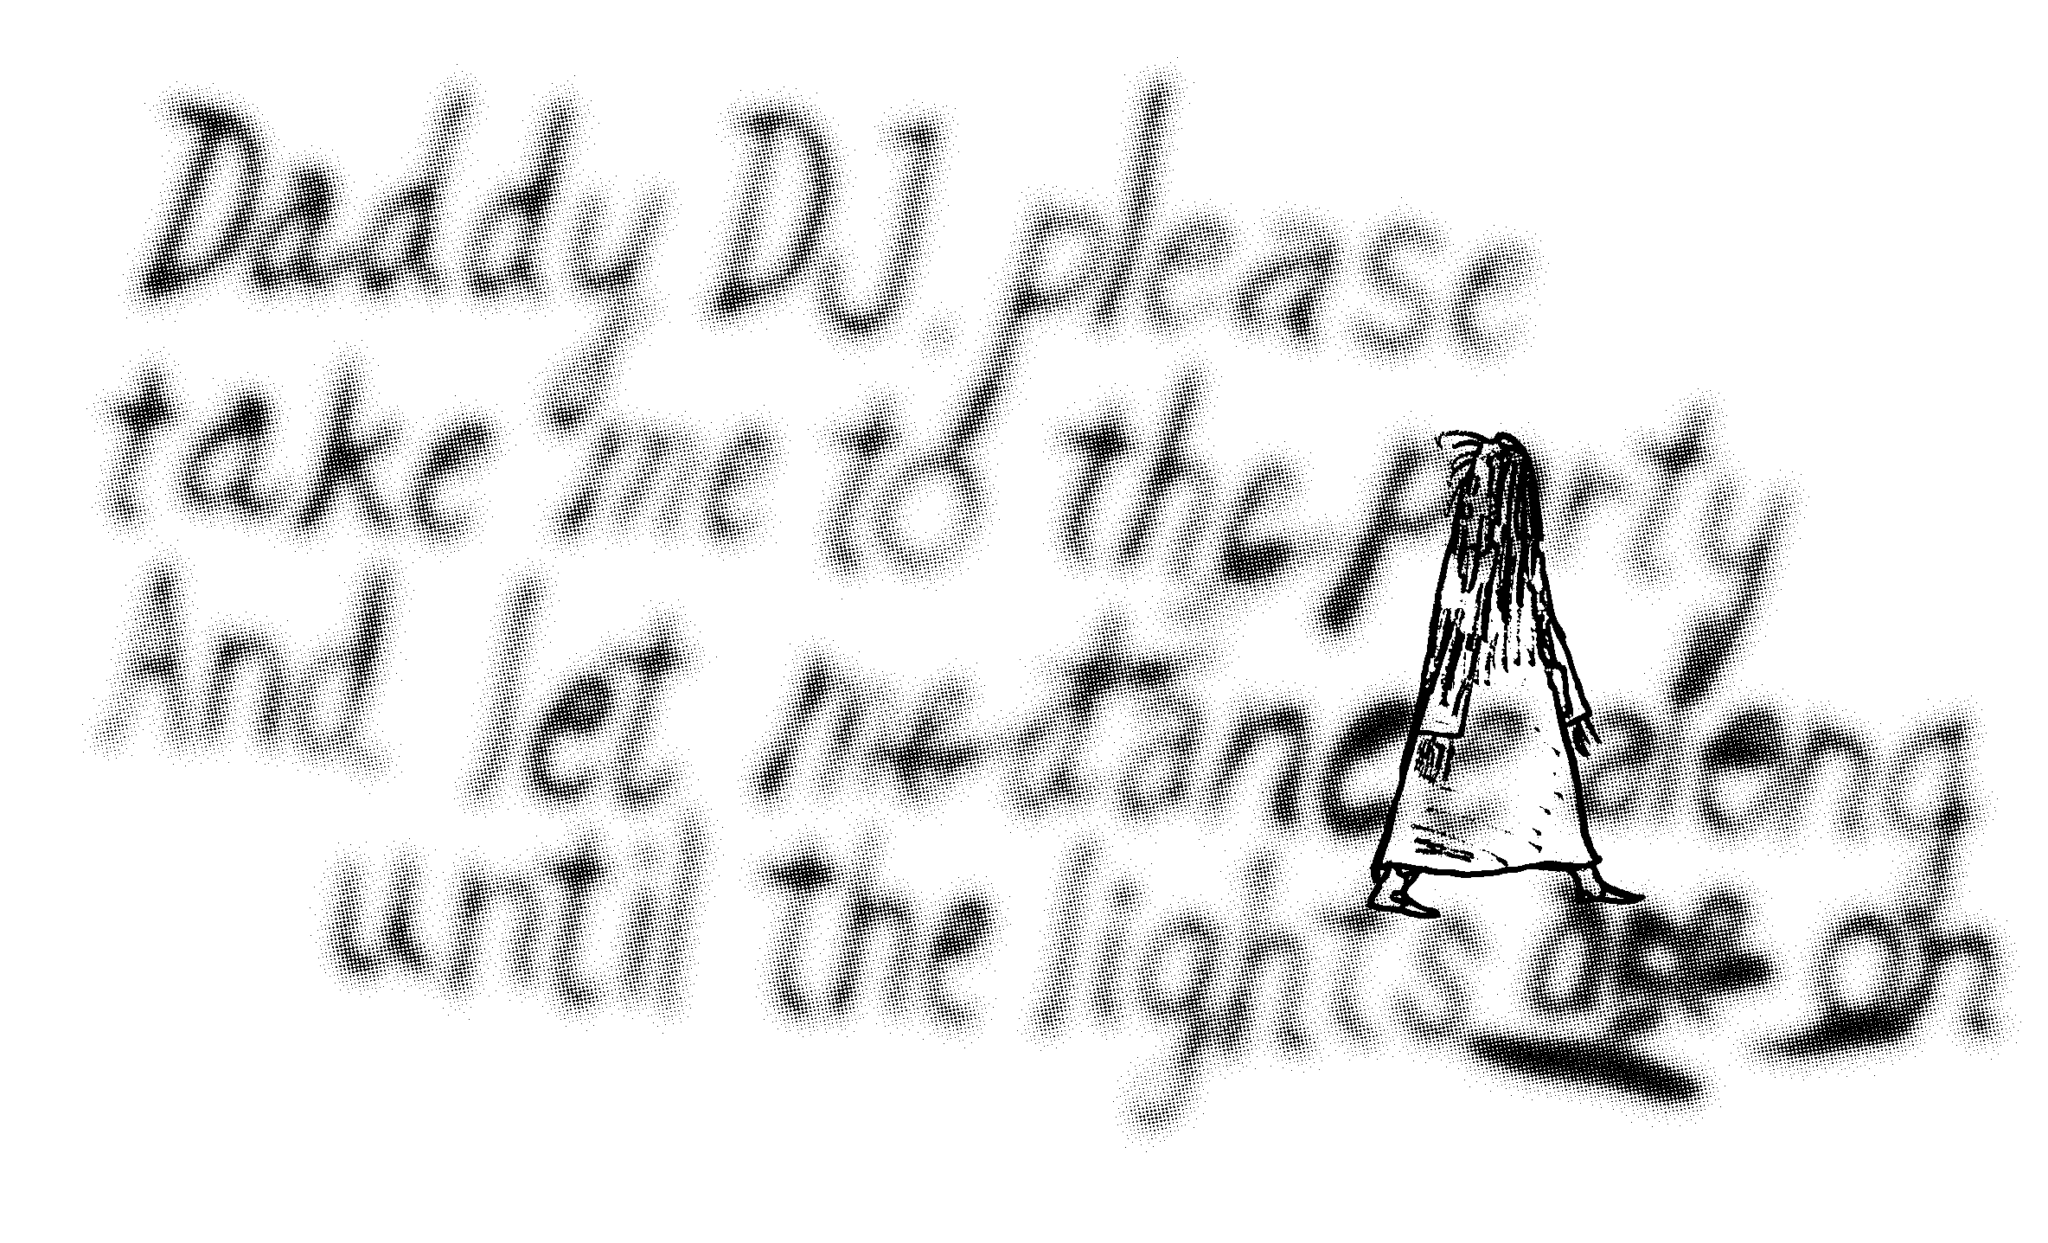 Daddy DJ. please
take me to the party
And let me dance along
until the lights are on